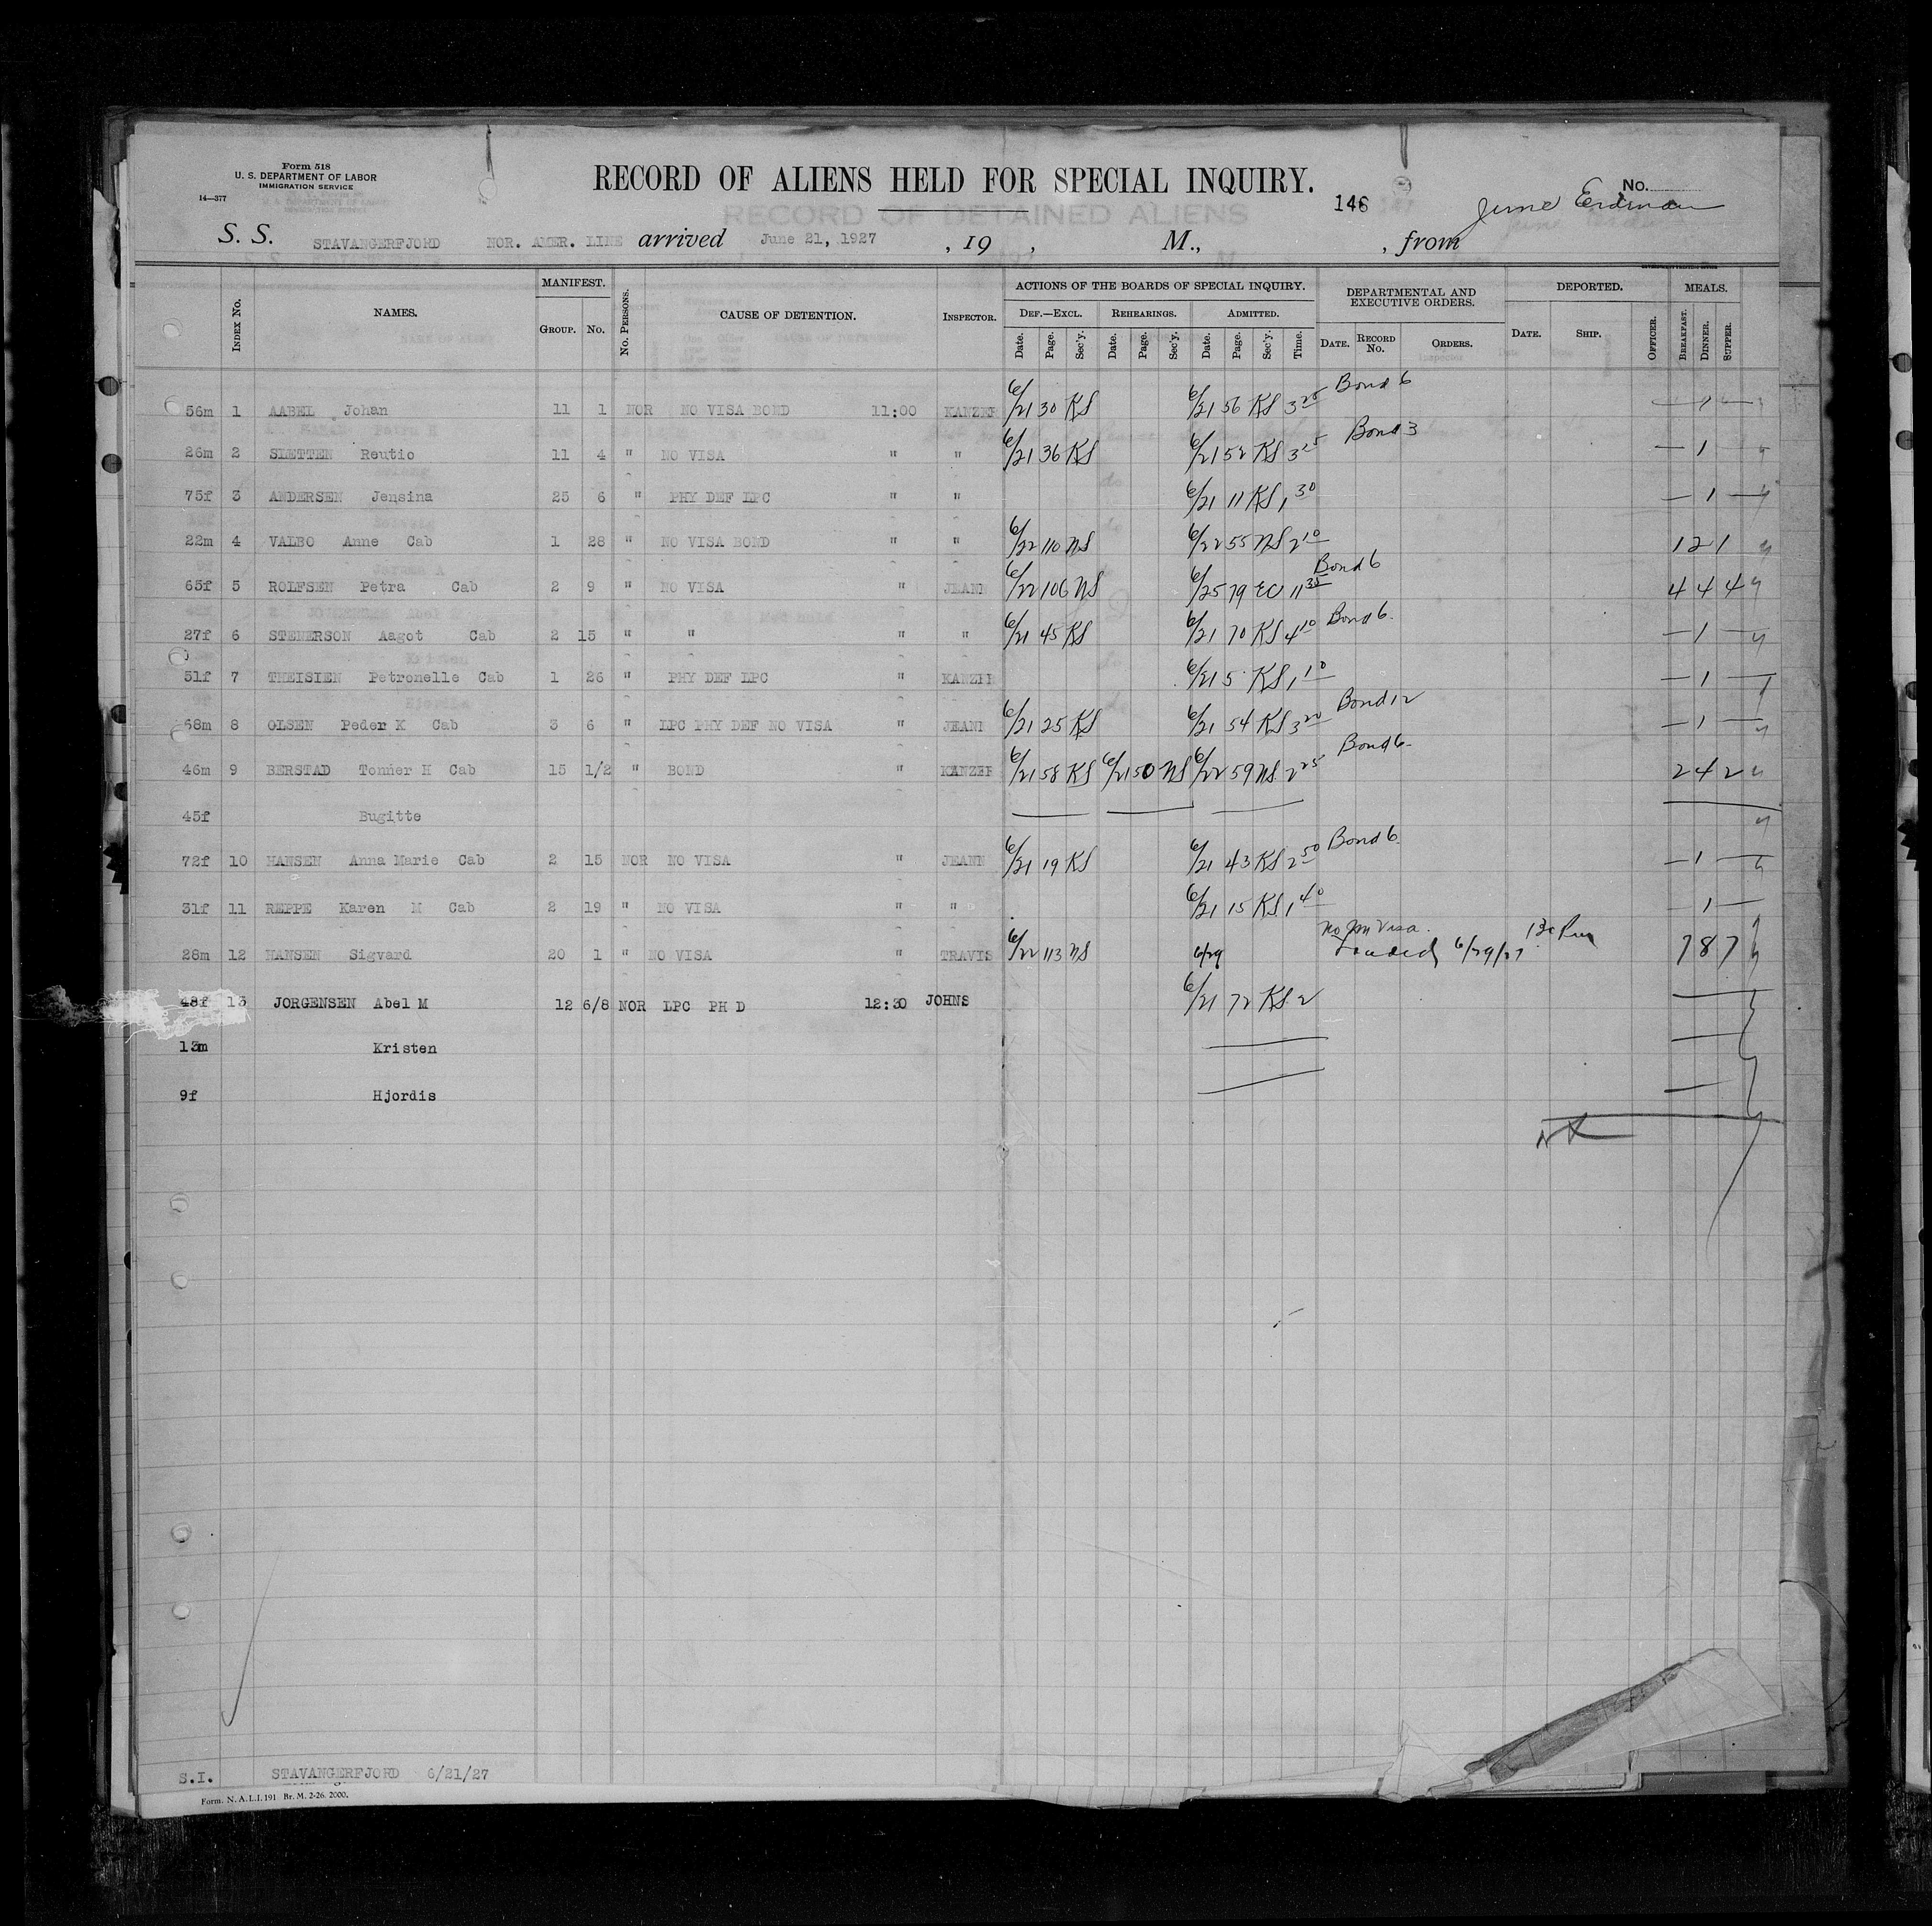 Form 518
U. S. DEPARTMENT OF LABOR
IMMIGRATION SERVICE
14—377
RECORD OF ALIENS HELD FOR SPECIAL INQUIRY.
146
No.
S. S. STAVANGERFJORD NOR. AMER. LINE arrived June 21, 1927 , 19 , M., , from
MANIFEST. ACTIONS OF THE BOARDS OF SPECIAL INQUIRY. DEPARTMENTAL AND EXECUTIVE ORDERS. DEPORTED. MEALS.
INDEX NO. NAMES. GROUP. NO. NO. PERSONS. CAUSE OF DETENTION. INSPECTOR. DEF.—EXCL. REHEARINGS. ADMITTED.
Date. Page. Sec'y. Date. Page. Sec'y. Date. Page. Sec'y. Time. DATE. RECORD NO. ORDERS. DATE. SHIP. OFFICER. BREAKFAST. DINNER. SUPPER.
56m 1 AABEL Johan 11 1 NOR NO VISA BOND 11:00 KANZER 6/21 30 KS 6/21 56 KS 3 25 Bond 6 — 1 —
26m 2 SLETTEN Reutio 11 4 " NO VISA " " 6/21 36 KS 6/21 52 KS 3 25 Bond 3 — 1
75f 3 ANDERSEN Jensina 25 6 " PHY DEF LPC " " 6/21 11 KS 1 30 — 1 —
22m 4 VALBO Anne Cab 1 28 " NO VISA BOND " " 6/22 110 NS 6/22 55 NS 2 10 1 2 1
65f 5 ROLFSEN Petra Cab 2 9 " NO VISA " JEANN 6/22 106 NS 6/25 79 EC 11 35 Bond 6 4 4 4
27f 6 STENERSON Aagot Cab 2 15 " " " " 6/21 45 KS 6/21 70 KS 4 10 Bond 6. — 1 —
51f 7 THEISIEN Petronelle Cab 1 26 " PHY DEF LPC " KANZER 6/21 5 KS 1 10 — 1 —
68m 8 OLSEN Peder K Cab 3 6 " LPC PHY DEF NO VISA " JEANN 6/21 25 KS 6/21 54 KS 3 20 Bond 12 — 1 —
46m 9 BERSTAD Tonner H Cab 15 1/2 " BOND " KANZER 6/21 58 KS 6/21 50 NS 6/22 59 NS 2 25 Bond 6. 2 4 2
45f Bugitte
72f 10 HANSEN Anna Marie Cab 2 15 NOR NO VISA " JEANN 6/21 19 KS 6/21 43 KS 2 50 Bond 6 — 1 —
31f 11 REPPE Karen M Cab 2 19 " NO VISA " " 6/21 15 KS 1 40 — 1 —
28m 12 HANSEN Sigvard 20 1 " NO VISA " TRAVIS 6/22 113 NS 6/29 No Im Visa. 6/29/27 7 8 7
48f 13 JORGENSEN Abel M 12 6/8 NOR LPC PH D 12:30 JOHNS 6/21 72 KS 2
13m Kristen
9f Hjordis
S.I. STAVANGERFJORD 6/21/27
Form. N. A. L. I. 191 Br. M. 2-26. 2000.